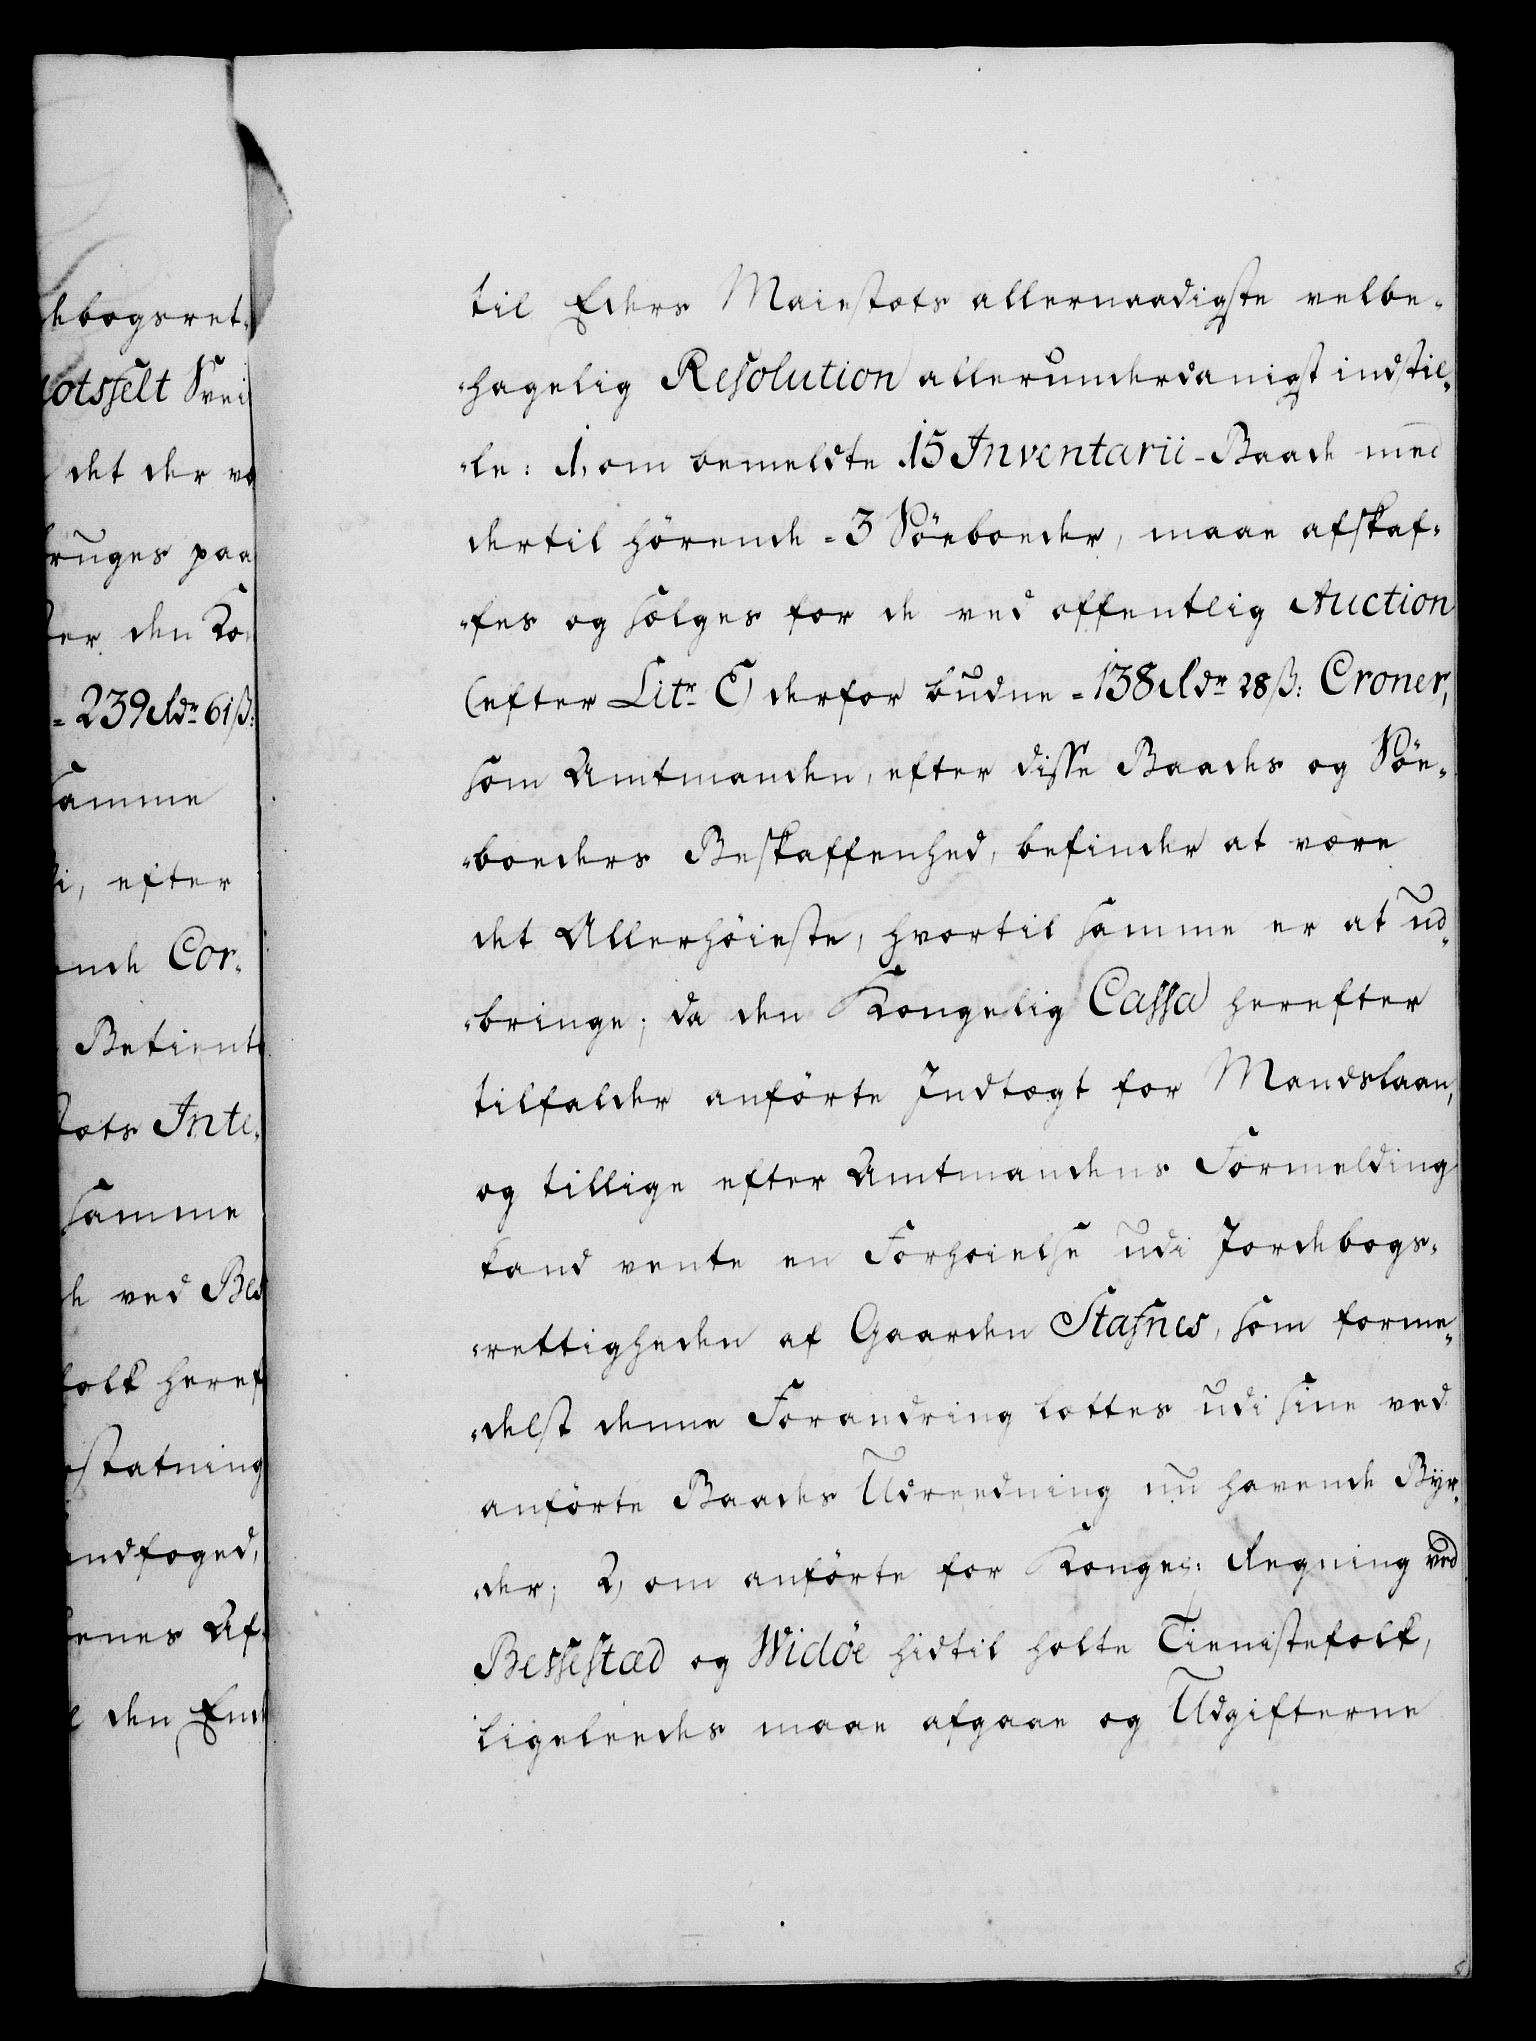 debogsret-
otsselt Svei
det der va
bruges paa
den Ko
= 239 Rdr 61 ß:
samme
i, efter
ende Cor-
Betiente
tæts Inte-
samme
de ved Bes
folk heref
statning
andfoged,
enes Af-
den Ende
til Eders Maiestæts allernaadigste velbe-
-hagelig Resolution allerunderdanigst indstil-
-le: 1, om bemeldte 15 Inventarii-Baade med
dertil hörende = 3 Söeboeder, maae afskaf-
-fes og sælges for de ved offentlig Auction
(efter Litr. E) derfor budne = 138 Rdr 28 ß: Croner,
som Amtmanden, efter disse Baades og Söe-
-boeders Beskaffenhed, befinder at være
det Allerhöieste, hvortil samme er at ud-
-bringe; da den Kongelig Cassa herefter
tilfalder anförte Indtægt for Mandslaan,
og tillige efter Amtmandens Formelding
kand vente en Forhöielse udi Jordebogs-
-rettigheden af Gaarden Stafnes, som forme-
-delst denne Forandring lættes udi sine ved
anförte Baades Udreedning nu havende Byr-
-der; 2, om anförte for Konges: Regning ved
Bessestæd og Widöe hidtil holte Tienistefolk,
ligeleedes maae afgaae og Udgifterne